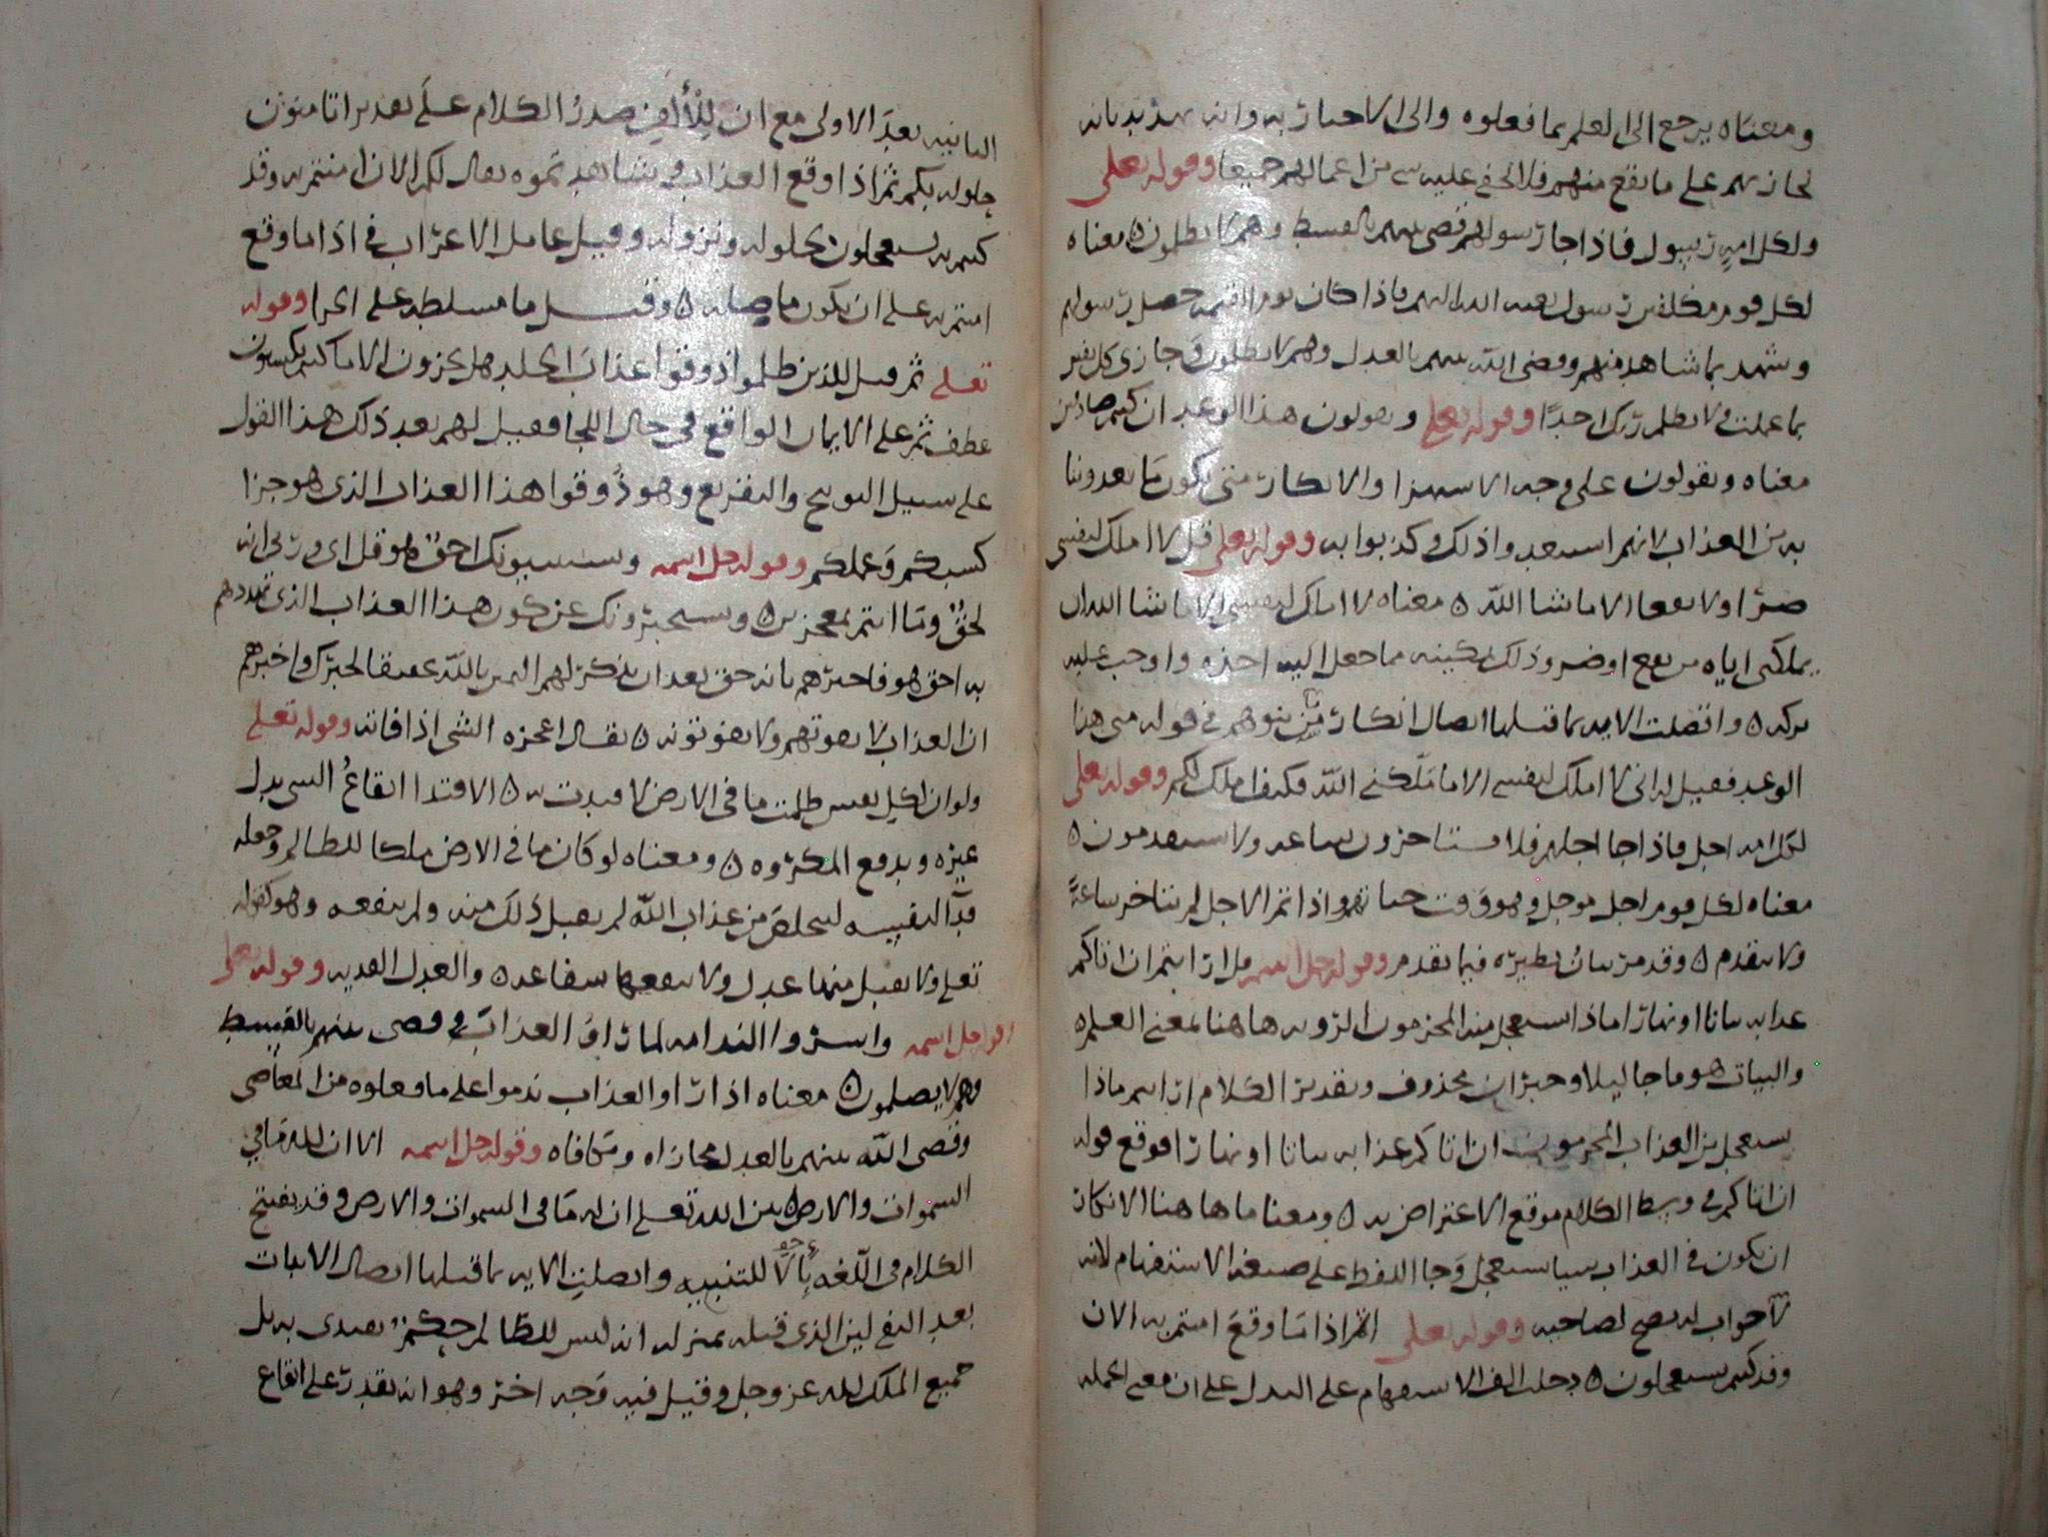 ومعناه يرجع الى العلم بما فعلوه والى الاخبار به وانه يهددهم بانه
يجازيهم على ما يقع منهم فلا يخفى عليه شي من اعمالهم جميعا وقوله تعلى
ولكل امه رسول فاذا جا رسولهم قضى بينهم بالقسط وهم لا يظلمون ه معناه
لكل قوم مكلفين رسول بعثه الله اليهم فاذا كان يوم القيمه حصل رسولهم
وشهد بما شاهد منهم وقضى الله بينهم بالعدل وهم لا يظلمون وجازى كل نفس
بما عملت ولا يظلم ربك احدًا وقوله تعلى ويقولون هذا الوعد ان كنتم صادقين
معناه ويقولون على وجه الاستهزا والانكار متى يكون ما تعدوننا
به من العذاب لانهم استبعدوا ذلك وكذبوا به وقوله تعلى قل لا املك لنفسى
ضرّا ولا نفعا الا ما شا الله ه معناه لا املك لنفسى الا ما شا الله ان
يملكنى اياه من نفع او ضر وذلك تمكينه مما جعل اليه اخذه واوجب عليه
تركه ه واتصلت الايه بما قبلها اتصال انكار من يتوهم فى قوله متى هذا
الوعد فقيل له انى لا املك لنفسى الا ما ملّكنى الله فكيف املك لكم وقوله تعلى
لكل امه اجل فاذا جا اجلهم فلا يستاخرون ساعه ولا يستقدمون ه
معناه لكل قوم اجل موجل وهو وقت حياتهم واذا تم الاجل لم يتاخر ساعةً
ولا يتقدم ه وقد مر بيان نظيره فيما تقدم وقوله جل اسمه قل ارايتم ان اتاكم
عذابه بياتا او نهارًا ماذا يستعجل منه المجرمون الرويه هاهنا بمعنى العلم ه
والبيات هو ما جا ليلا وخبر ان محذوف وتقدير الكلام ارايتم ماذا
يستعجل من العذاب المجرمون ان اتاكم عذابه بياتا او نهارًا فوقع قوله
ان اتاكم فى وسط الكلام موقع الاعتراض به ه ومعنا ما هاهنا الانكار
ان يكون فى العذاب شيا يستعجل وجا اللفظ على صيغه الاستفهام لانه
لا جواب له يصح لصاحبه وقوله تعلى اثم اذا ما وقع امنتم به الان
وقد كنتم به تستعجلون ه دخلت الف الاستفهام على العدل على ان معنى الجمله
الثانيه بعد الاولى مع ان للألف صدر الكلام على تقدير اتامنون
حلوله بكم ثم اذا وقع العذاب وشاهدتموه يقال لكم الان امنتم به وقد
كنتم به تستعجلون بحلوله ونزوله وقيل عامل الاعراب فى اذا ما وقع
امنتم به على ان يكون ما صله ه وقيل ما مسلطه على الجزا وقوله
تعلى ثم قيل للذين ظلموا ذوقوا عذاب الخلد هل تجزون الا ما كنتم تكسبون
عطف ثم على الايمان الواقع فى حال اللجا فقيل لهم بعد ذلك هذا القول
على سبيل التوبيخ والتقريع وهو ذُوقوا هذا العذاب الذى هو جزا
كسبكم وعملكم وقوله جل اسمه ويستنبيونك احق هو قل اى وربى انه
لحق وما انتم بمعجزين ه ويستخبرونك عن كون هذا العذاب الذى تهددهم
به احق هو فاخبرهم بانه حق بعد ان تذكر لهم اليمين بالله تحقيقا لخبرك واخبرهم
ان العذاب لا يفوتهم ولا يفوتونه ه يقال اعجزه الشى اذا فاته وقوله تعلى
ولو ان لكل نفس ظلمت ما فى الارض لافتدت به ه الافتدا ايقاعُ الشى بدل
غيره ويدفع المكروه ه ومعناه لو كان ما فى الارض ملكا للظالم وجعله
فدآ لنفسه ليتخلص من عذاب الله لم يقبل ذلك منه ولم ينفعه وهو كقوله
تعلى ولا يقبل منها عدل ولا تنفعها شفاعه ه والعدل الفديه وقوله تعلى
جل اسمه واسرّوا الندامه لما راوا العذاب وقضى بينهم بالقسط
وهم لا يظلمون ه معناه اذا راوا العذاب ندموا على ما فعلوه من المعاصى
وقضى الله بينهم بالعدل مجازاه ومكافاه وقوله جل اسمه الا ان لله ما فى
السموات والارض ه بين الله تعلى ان له ما فى السموات والارض وقد يفتتح
الكلام فى اللغه بألا للتنبيه واتصلت الايه بما قبلها اتصال الاثبات
بعد النفى لين الذى قبله بمنزله انه ليس للظالم حكم يفتدى به بل
جميع الملك لله عز وجل وقيل فيه وجه اخر وهو انه يقدر على ايقاع